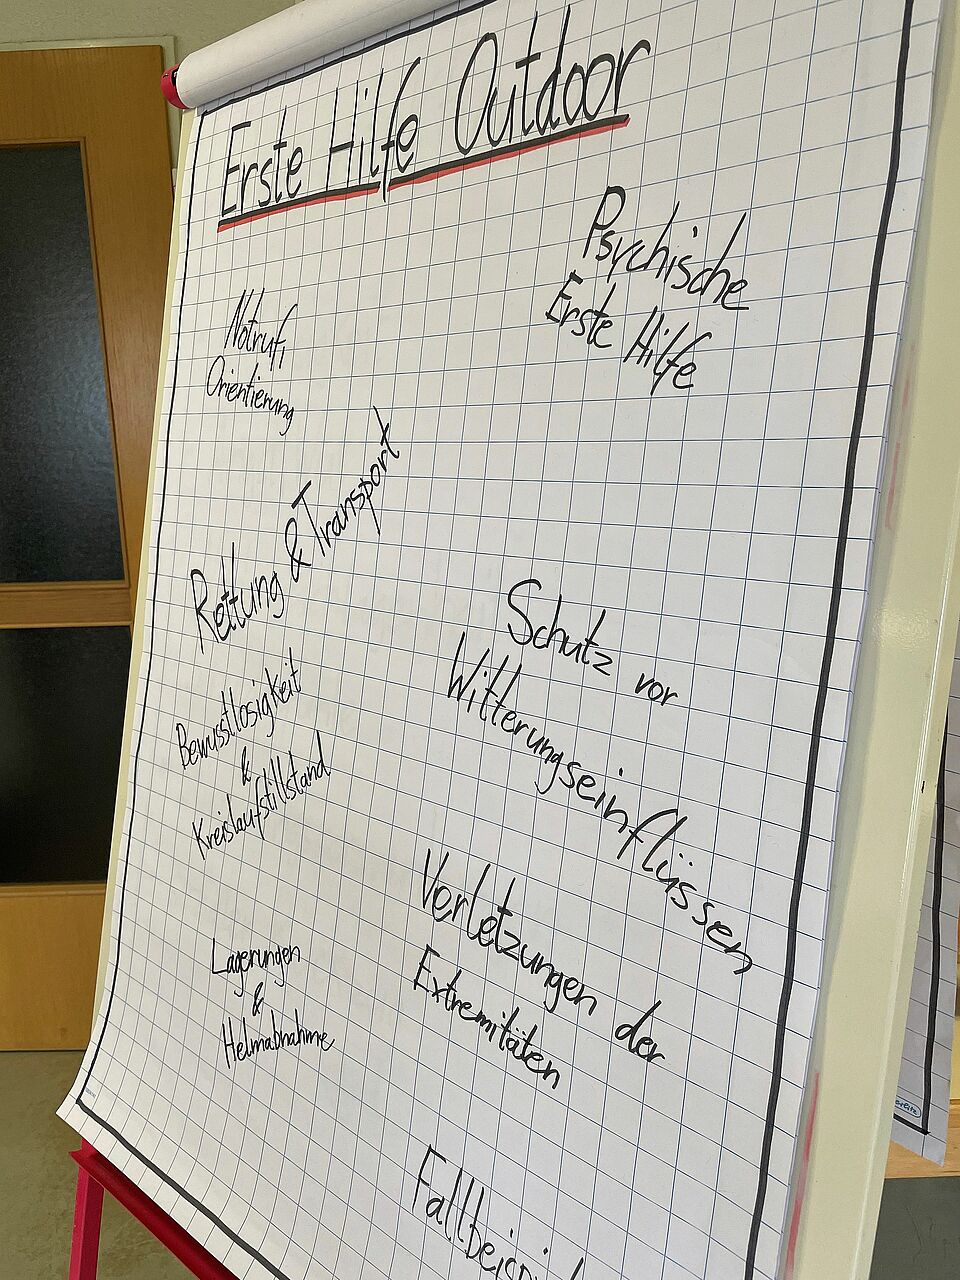 Erste Hilfe Outdoor
Notruf,
Orientierung
Rettung & Transport
Bewusstlosigkeit
&
Kreislaufstillstand
Lagerungen
&
Helmabnahme
Psychische
Erste Hilfe
Schutz vor
Witterungseinflüssen
Verletzungen der
Extremitäten